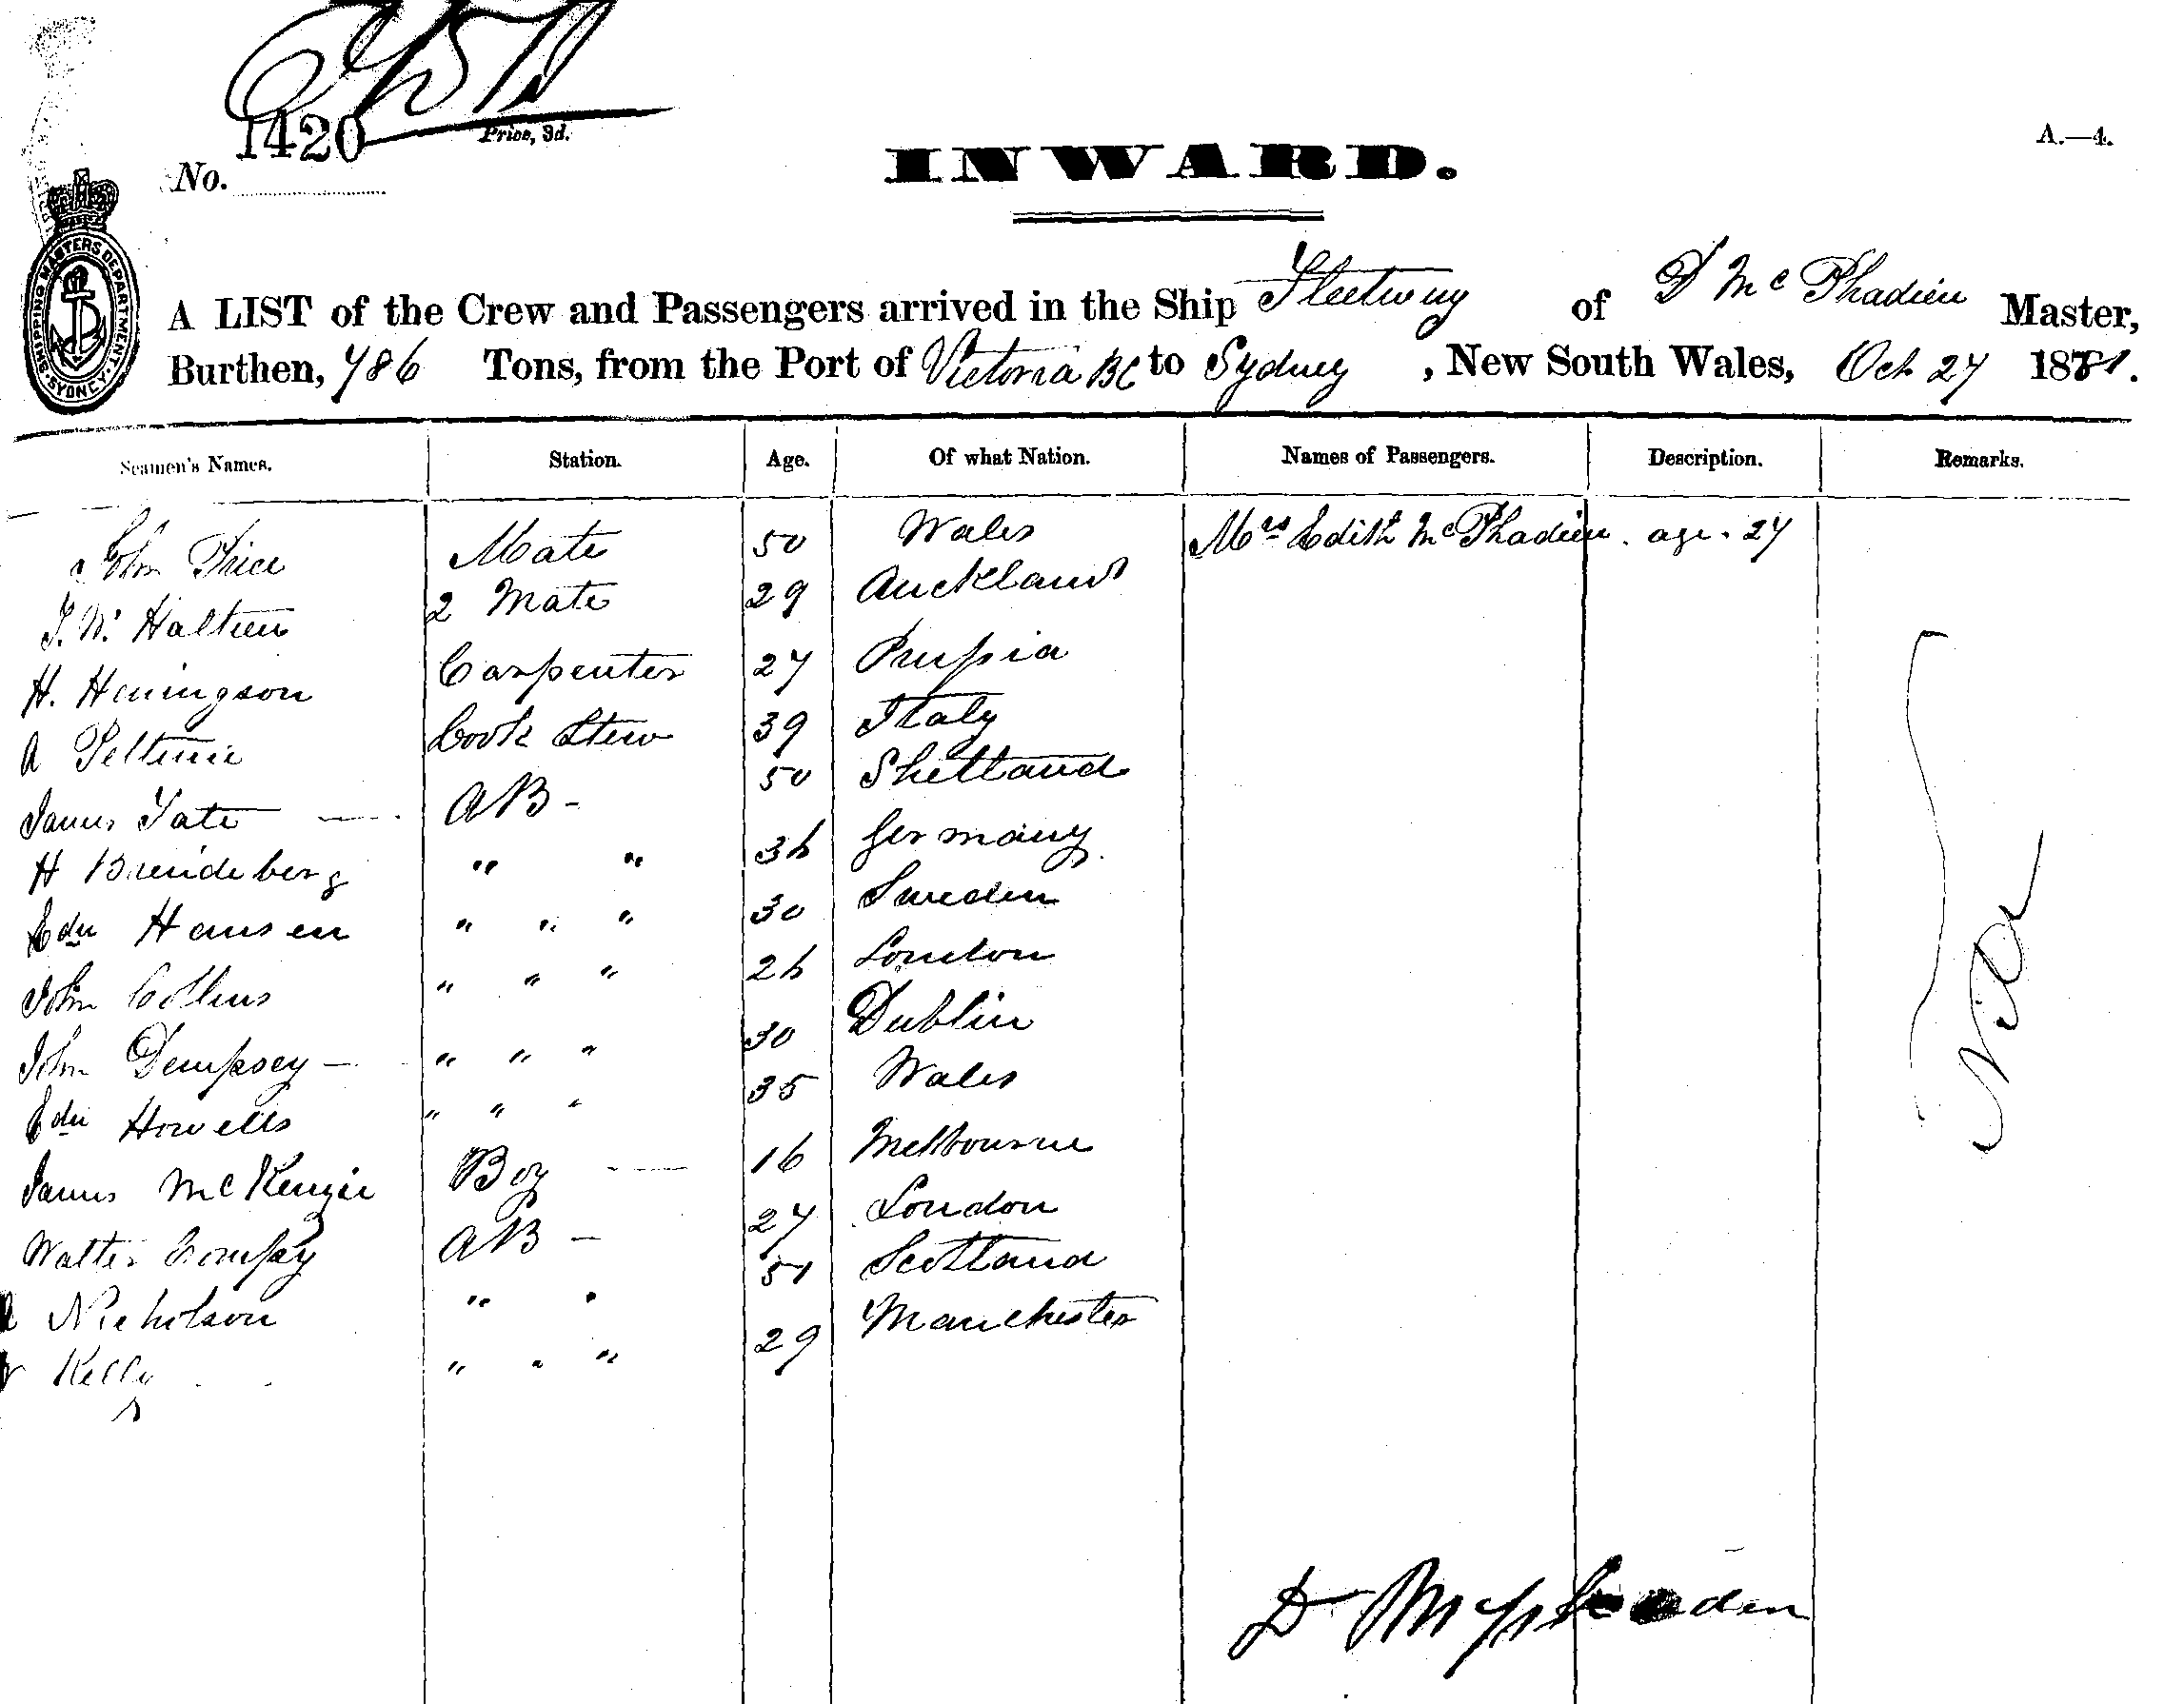 1420
Price, 3d.
No.
INWARD.
A.—4.
SHIPPING MASTERS DEPARTMENT. SYDNEY.
A LIST of the Crew and Passengers arrived in the Ship Fleetwing of D McPhadien Master,
Burthen, 786 Tons, from the Port of Victoria BC to Sydney, New South Wales, Oct 27 1881.
Seamen's Names. Station. Age. Of what Nation. Names of Passengers. Description. Remarks.
John Price Mate 50 Wales Mrs Edith McPhadien. age. 27
2 Mate 29 Auckland
H. Heningson Carpenter 27 Prussia
A Cook Stew 39 Italy
James Tate AB - 50 Shetland
H " " Germany
Edw Hansen " " " 30 Sweden
John Collins " " " London
John Dempsey - " " " 30 Dublin
Edw Howells " " " 35 Wales
James McKenzie Boy 16 Melbourne
Walter AB - 27 London
Nicholson " " 51 Scotland
Kelly " " " 29 Manchester
D